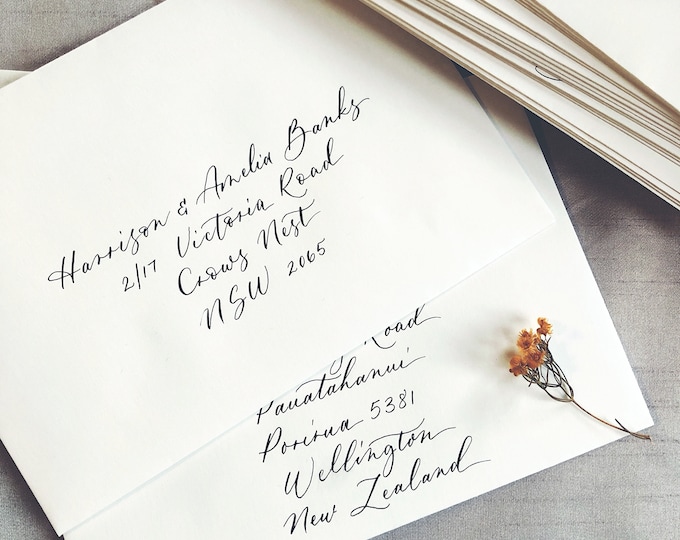 Harrison & Amelia Banks
2/17 Victoria Road
Crows Nest
NSW 2065
Road
Pauatahanui
Porirua 5381
Wellington
New Zealand